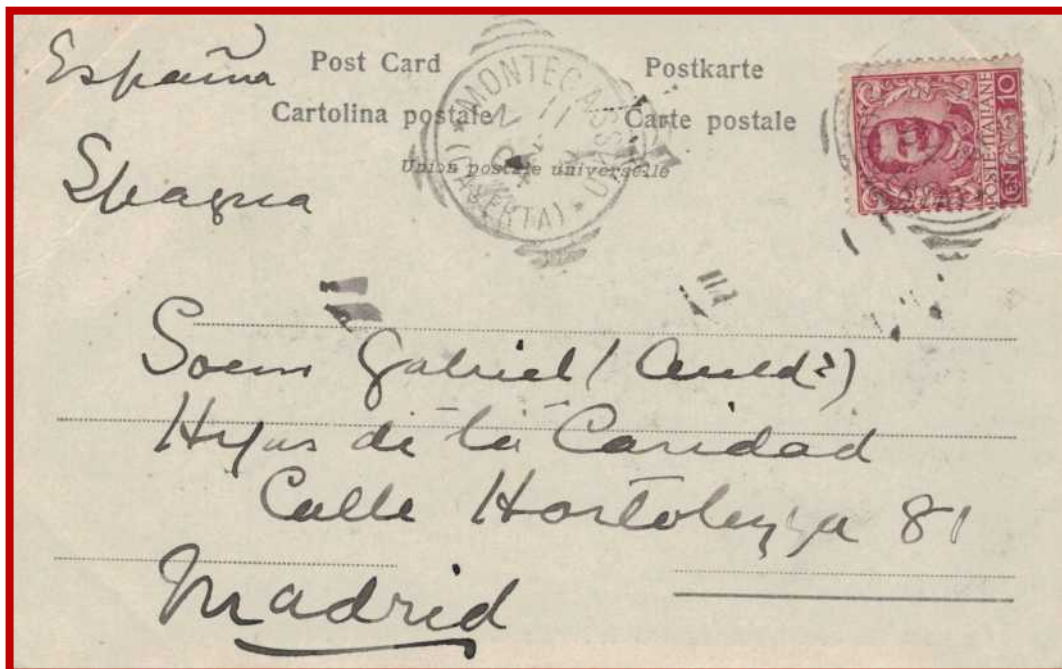 España
Spagna
Post Card
Postkarte
Cartolina postale
Carte postale
Union postale universelle
MONTECASSINO
(CASERTA)
POSTE ITALIANE
CEN 10
Soeur Gabriel (
Hijas de la Caridad
Calle Hortolezza 81
Madrid